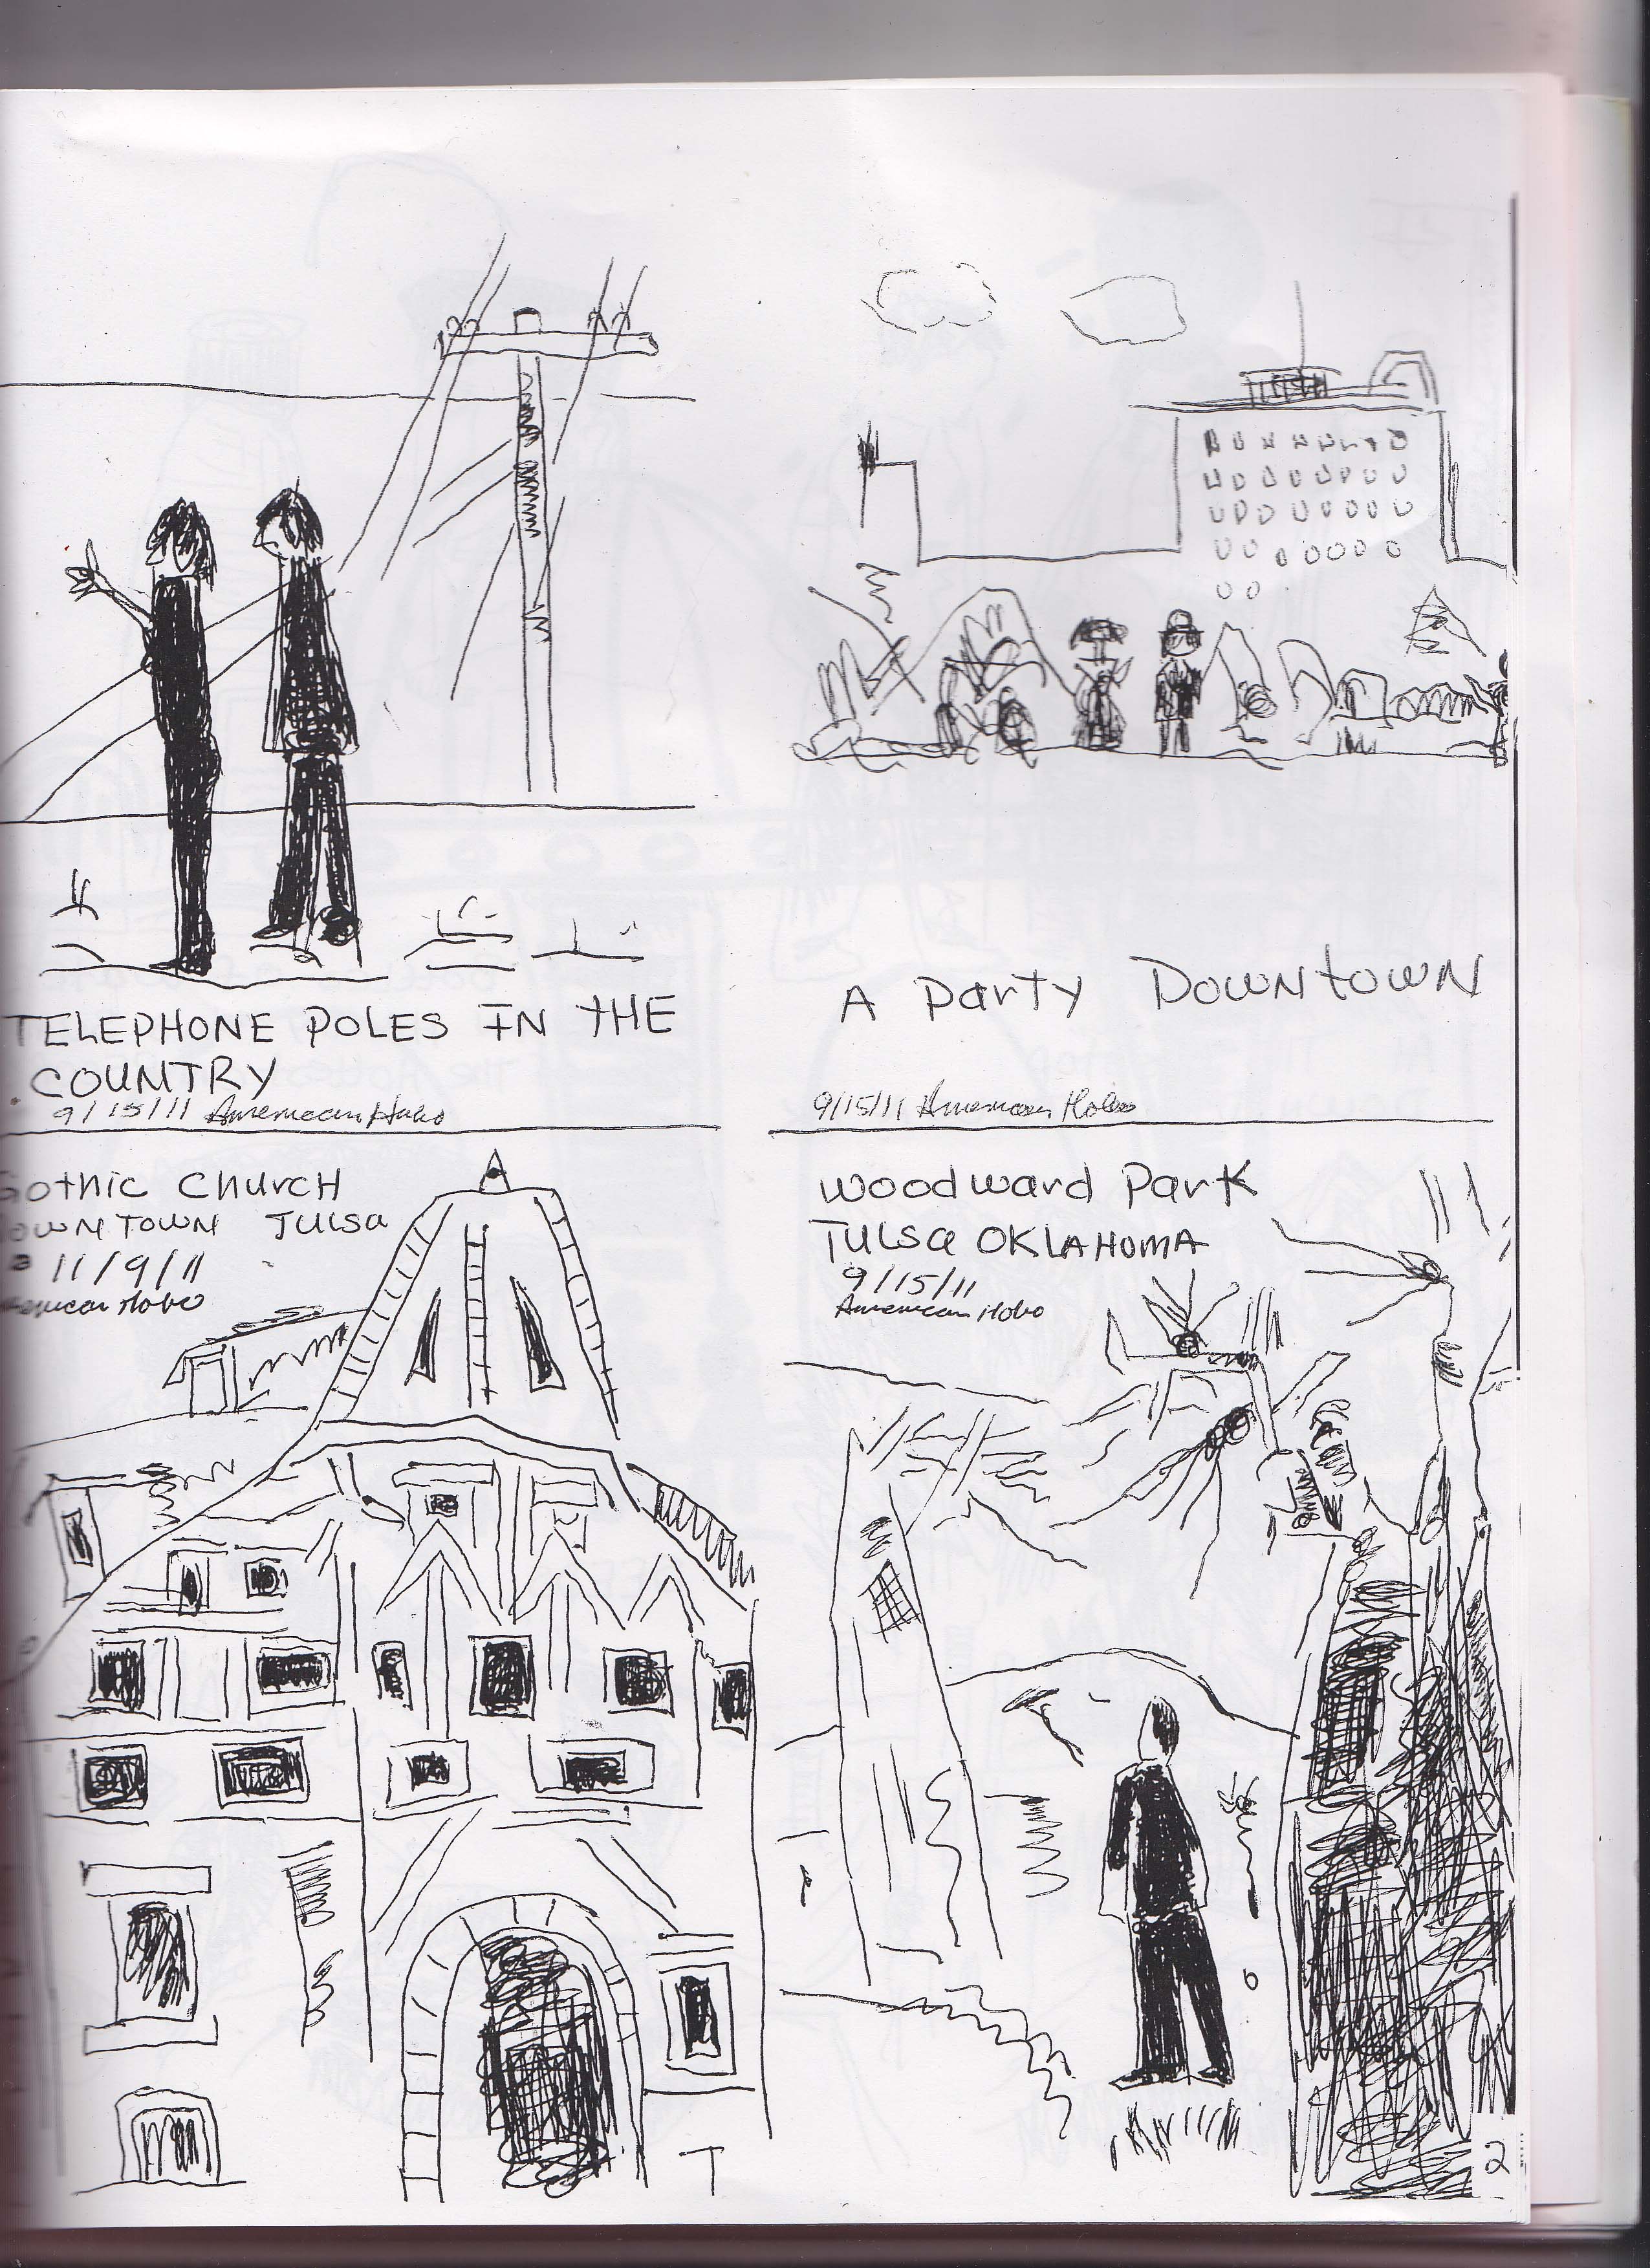 TELEPHONE POLES IN THE
COUNTRY
9/15/11 American Hobo
A Party Downtown
9/15/11 American Hobo
Gothic Church
Downtown Tulsa
11/9/11
American Hobo
Woodward Park
Tulsa OKLAHOMA
9/15/11
American Hobo
2